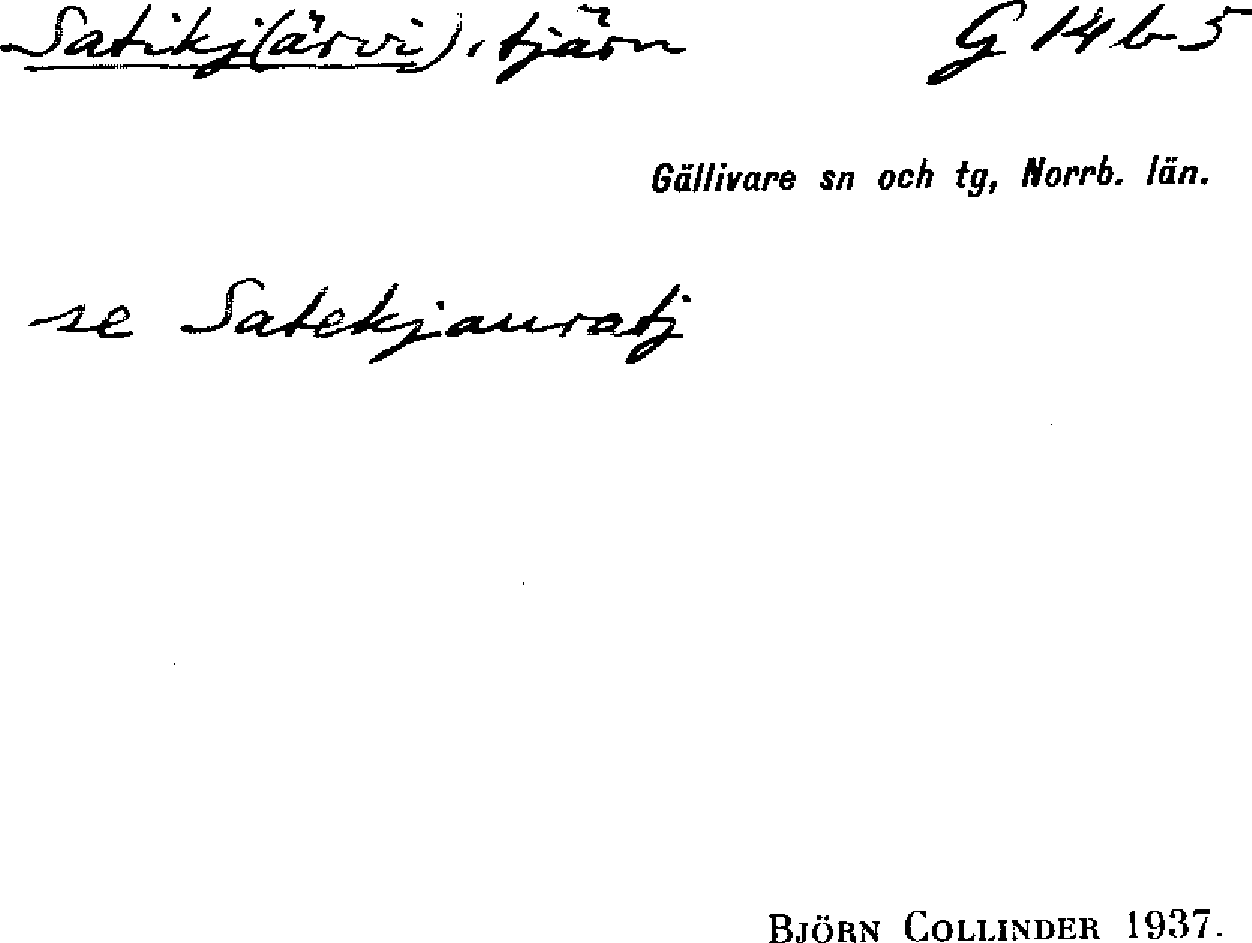 Satikj(ärvi), tjärn G 14 b 5
Gällivare sn och tg, Norrb. län.
se Satekjauratj
BJÖRN COLLINDER 1937.